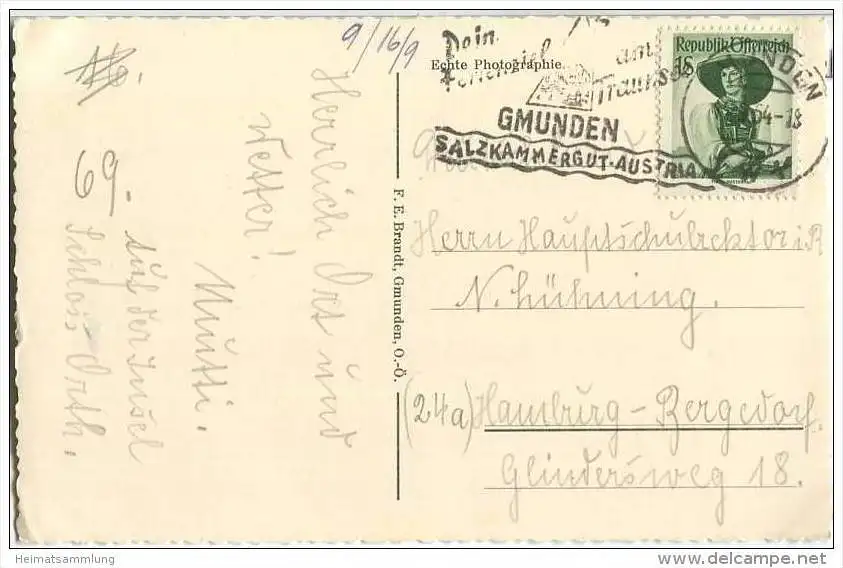 9/16/9
Herrlich Ort und
Wetter!
Mutti.
69.
auf der Insel
Schloss Orth.
Echte Photographie
F. E. Brandt, Gmunden, O.-Ö.
Dein
Ferienziel
am
Traunsee
GMUNDEN
SALZKAMMERGUT-AUSTRIA
Republik Österreich
1S
Herrn Hauptschulrektor i.R
N. Hühning.
(24a) Hamburg-Bergedorf.
Glindersweg 18.
Heimatsammlung
delcampe.net